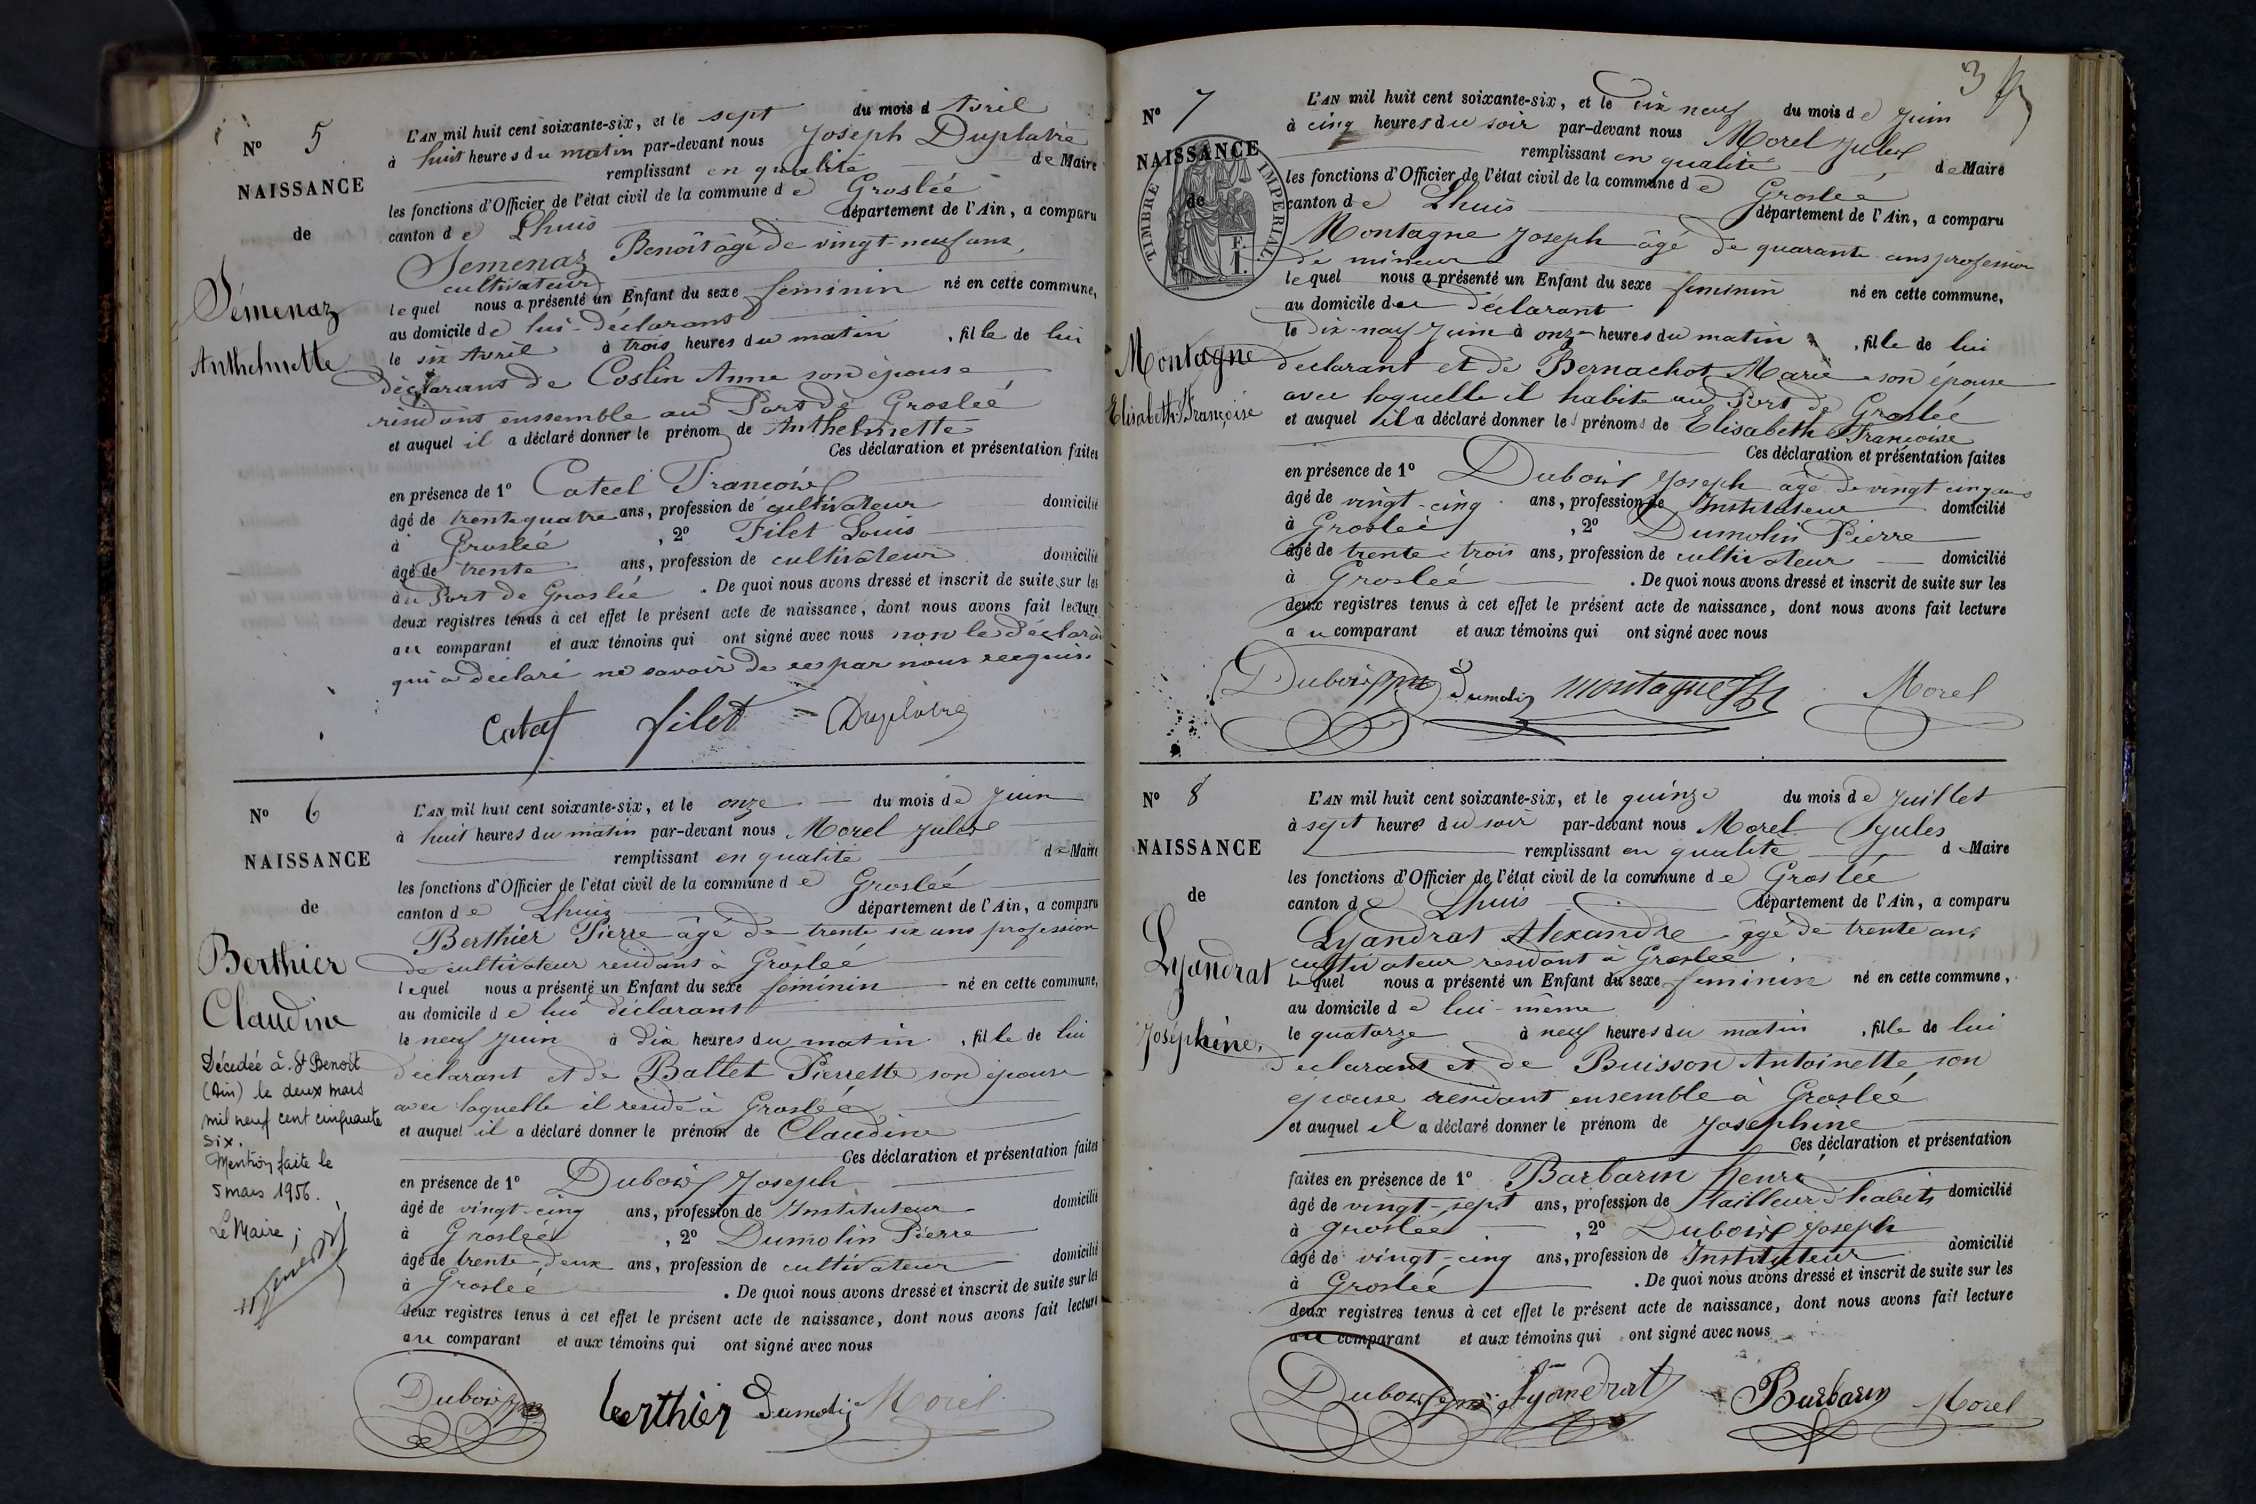 N° 5
NAISSANCE
de
Sémenaz
Anthelmette
L'AN mil huit cent soixante-six, et le sept du mois d Avril
à huit heures du matin par-devant nous Joseph Duplatre
remplissant en qualité de Maire
les fonctions d'Officier de l'état civil de la commune de Groslée
canton de Lhuis département de l'Ain, a comparu
Semenaz Benoît âgé de vingt-neuf ans,
cultivateur
lequel nous a présenté un Enfant du sexe feminin né en cette commune,
au domicile de lui-déclarant
le six Avril à trois heures du matin, fille de lui
déclarant de Coslin Anne son épouse
résidant enssemble au Port de Groslée
et auquel il a déclaré donner le prénom de Anthelmette
Ces déclaration et présentation faites
en présence de 1° Catel François
âgé de trente quatre ans, profession de cultivateur domicilié
à Groslée, 2° Filet Louis
âgé de trente ans, profession de cultivateur domicilié
au Port de Groslée. De quoi nous avons dressé et inscrit de suite sur les
deux registres tenus à cet effet le présent acte de naissance, dont nous avons fait lecture
au comparant et aux témoins qui ont signé avec nous non le déclarant
qui a déclaré ne savoir de ce par nous requis.
Catel filet Duplatre
N° 6
NAISSANCE
de
Berthier
Claudine
Décédée à St Benoît
(Ain) le deux mars
mil neuf cent cinquante
six.
Mention faite le
5 mars 1956.
Le Maire;
L'AN mil huit cent soixante-six, et le onze du mois de Juin
à huit heures du matin par-devant nous Morel Jules
remplissant en qualité de Maire
les fonctions d'Officier de l'état civil de la commune de Groslée
canton de Lhuis département de l'Ain, a comparu
Berthier Pierre âgé de trente six ans profession
de cultivateur residant à Groslée
lequel nous a présenté un Enfant du sexe féminin né en cette commune,
au domicile de lui déclarant
le neuf Juin à dix heures du matin, fille de lui
déclarant et de Ballet Pierrette son épouse
avec laquelle il reside à Groslée
et auquel il a déclaré donner le prénom de Claudine
Ces déclaration et présentation faites
en présence de 1° Dubois Joseph
âgé de vingt-cinq ans, profession de Instituteur domicilié
à Groslée, 2° Dumolin Pierre
âgé de trente-deux ans, profession de cultivateur domicilié
à Groslée. De quoi nous avons dressé et inscrit de suite sur les
deux registres tenus à cet effet le présent acte de naissance, dont nous avons fait lecture
au comparant et aux témoins qui ont signé avec nous
Dubois berthier Dumolin Morel
3
N° 7
NAISSANCE
de
TIMBRE IMPERIAL
Montagne
Elisabeth Françoise
L'AN mil huit cent soixante-six, et le dix neuf du mois de Juin
à cinq heures du soir par-devant nous Morel Jules
remplissant en qualité de Maire
les fonctions d'Officier de l'état civil de la commune de Groslée
canton de Lhuis département de l'Ain, a comparu
Montagne Joseph âgé de quarante ans profession
de mineur
lequel nous a présenté un Enfant du sexe feminin né en cette commune,
au domicile du déclarant
le dix-neuf Juin à onze heures du matin, fille de lui
déclarant et de Bernachot Marie son épouse
avec laquelle il habite au Port de Groslée
et auquel il a déclaré donner les prénoms de Elisabeth Françoise
Ces déclaration et présentation faites
en présence de 1° Dubois Joseph âgé de vingt-cinq ans
âgé de vingt-cinq ans, profession de Instituteur domicilié
à Groslée, 2° Dumolin Pierre
âgé de trente-trois ans, profession de cultivateur domicilié
à Groslée. De quoi nous avons dressé et inscrit de suite sur les
deux registres tenus à cet effet le présent acte de naissance, dont nous avons fait lecture
au comparant et aux témoins qui ont signé avec nous
Dubois Dumolin montagne Morel
N° 8
NAISSANCE
de
Lyandrat
Joséphine
L'AN mil huit cent soixante-six, et le quinze du mois de Juillet
à sept heures du soir par-devant nous Morel Jules
remplissant en qualité de Maire
les fonctions d'Officier de l'état civil de la commune de Groslée
canton de Lhuis département de l'Ain, a comparu
Lyandrat Alexandre âgé de trente ans
cultivateur residant à Groslée
lequel nous a présenté un Enfant du sexe feminin né en cette commune,
au domicile de lui-même
le quatorze à neuf heures du matin, fille de lui
déclarant et de Buisson Antoinette son
épouse residant ensemble à Groslée
et auquel il a déclaré donner le prénom de Josephine
Ces déclaration et présentation
faites en présence de 1° Barbarin henri
âgé de vingt-sept ans, profession de tailleur d'habits domicilié
à Groslée, 2° Dubois Joseph
âgé de vingt-cinq ans, profession de Instituteur domicilié
à Groslée. De quoi nous avons dressé et inscrit de suite sur les
deux registres tenus à cet effet le présent acte de naissance, dont nous avons fait lecture
au comparant et aux témoins qui ont signé avec nous
Dubois Lyandrat Barbarin Morel